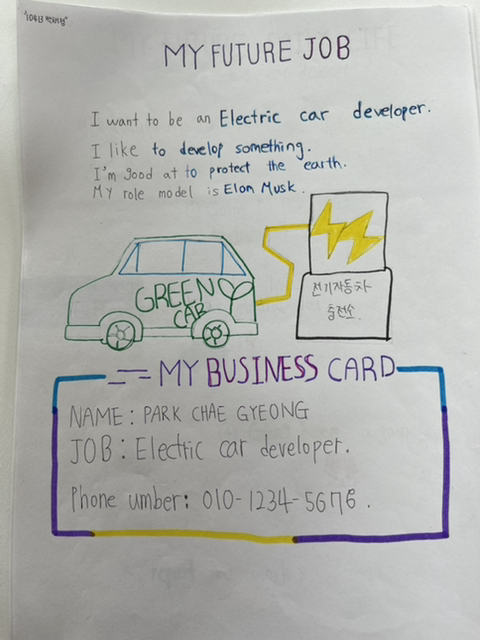 MY FUTURE JOB
I want to be an Electric car developer.
I like to develop something.
I'm good at to protect the earth.
MY role model is Elon Musk.
GREEN
CAR
전기자동차
충전소.
MY BUSINESS CARD
NAME: PARK CHAE GYEONG
JOB: Electric car developer.
Phone umber: 010-1234-5678.